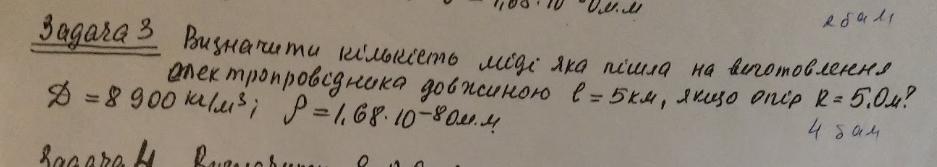 1,68·10⁻⁸Ом.м
2 бали
Задача 3 Визначити кількість міді яка пішла на виготовлення
електропровідника довжиною l = 5км, якщо опір R = 5.Ом?
D = 8 900 кг/м³; ρ = 1.68·10⁻⁸Ом.м
4 бал
Задача 4